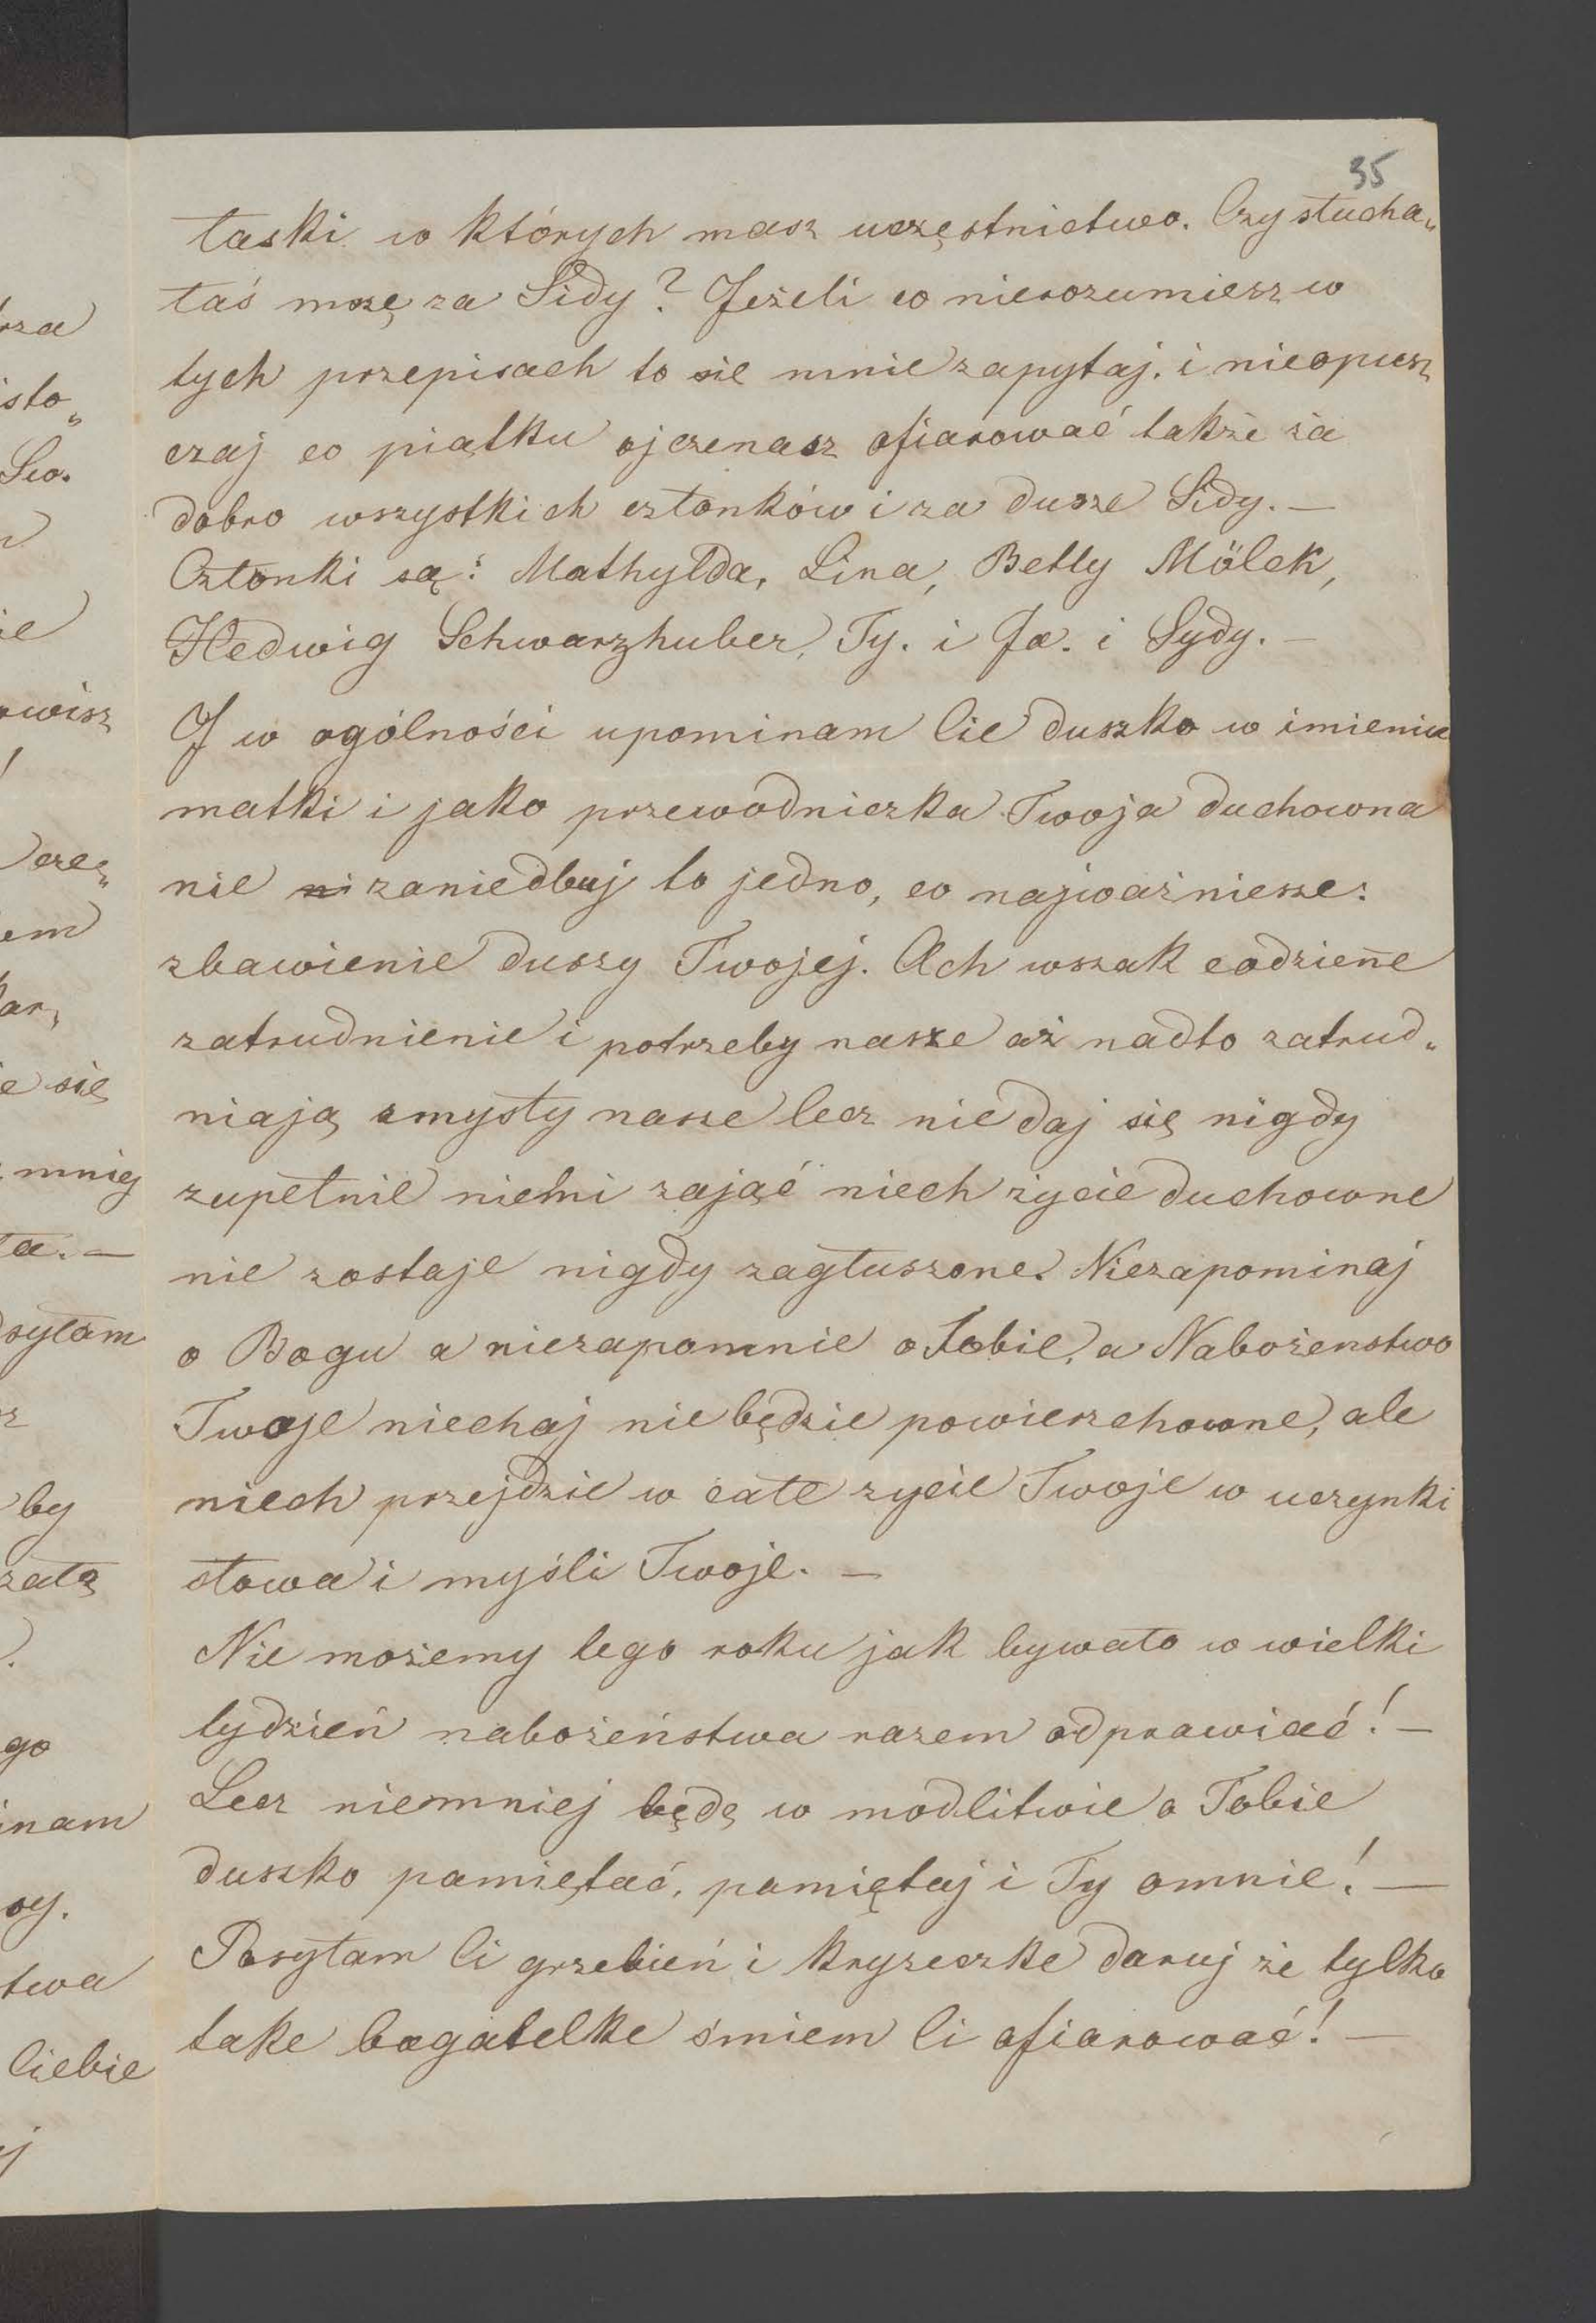 35
łaski w których masz uczęstnictwo. Czy słucha„
łaś mszę za Sidy? Jeżeli co nierozumiesz w
tych przepisach to się mnie zapytaj. i nieopusz
czaj co piątku ojczenasz ofiarować także za
dobro wszystkich członków i za dusze Sidy. —
Członki są: Mathylda, Lina, Betty Mölek,
Hedwig Schwarzhuber, Ty. i Ja. i Sydy. —
I w ogólności upominam Cie duszko w imieniu
matki i jako przewodniczka Twoja duchowna
nie ni zaniedbuj to jedno, co najważniesze:
zbawienie duszy Twojej. Ach wszak codzieñe
zatrudnienie i potrzeby nasze aż nadto zatrud„
niają zmysły nasze lecz nie daj się nigdy
zupełnie niemi zająć niech życie duchowne
nie zostaje nigdy zagłuszone. Niezapominaj
o Bogu a niezapomnie o Tobie, a Nabożenstwo
Twoje niechaj nie będzie powierzchowne, ale
niech przejdzie w całe życie Twoje w uczynki
słowa i myśli Twoje. —
Nie możemy tego roku jak bywało w wielki
tydzień nabożeństwa razem odprawiać! —
Lecz niemniej będę w modlitwie o Tobie
duszko pamiętać, pamiętaj i Ty omnie! —
Posyłam Ci grzebień i kryzeczke daruj że tylko
take bagatelke śmiem Ci ofiarować! —
isto„
Sw.
wisz
cze„
em
e się
mniej
syłam
by
go
inam
twa
Ciebie